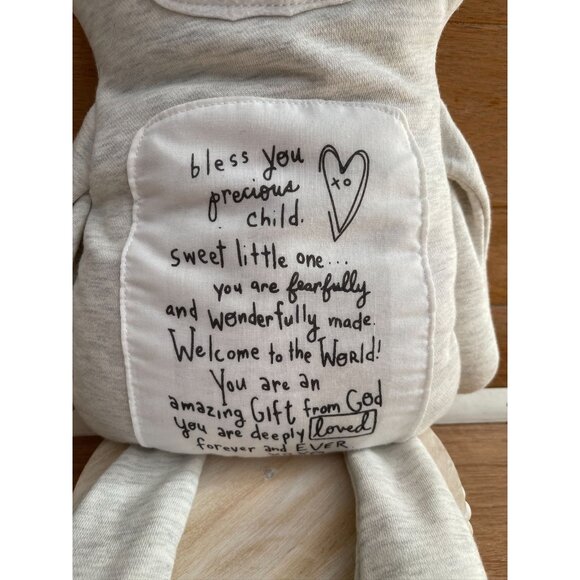 bless you
precious
child.
xo
sweet little one...
you are fearfully
and wonderfully made.
Welcome to the World!
You are an
amazing Gift from God
you are deeply loved
forever and EVER